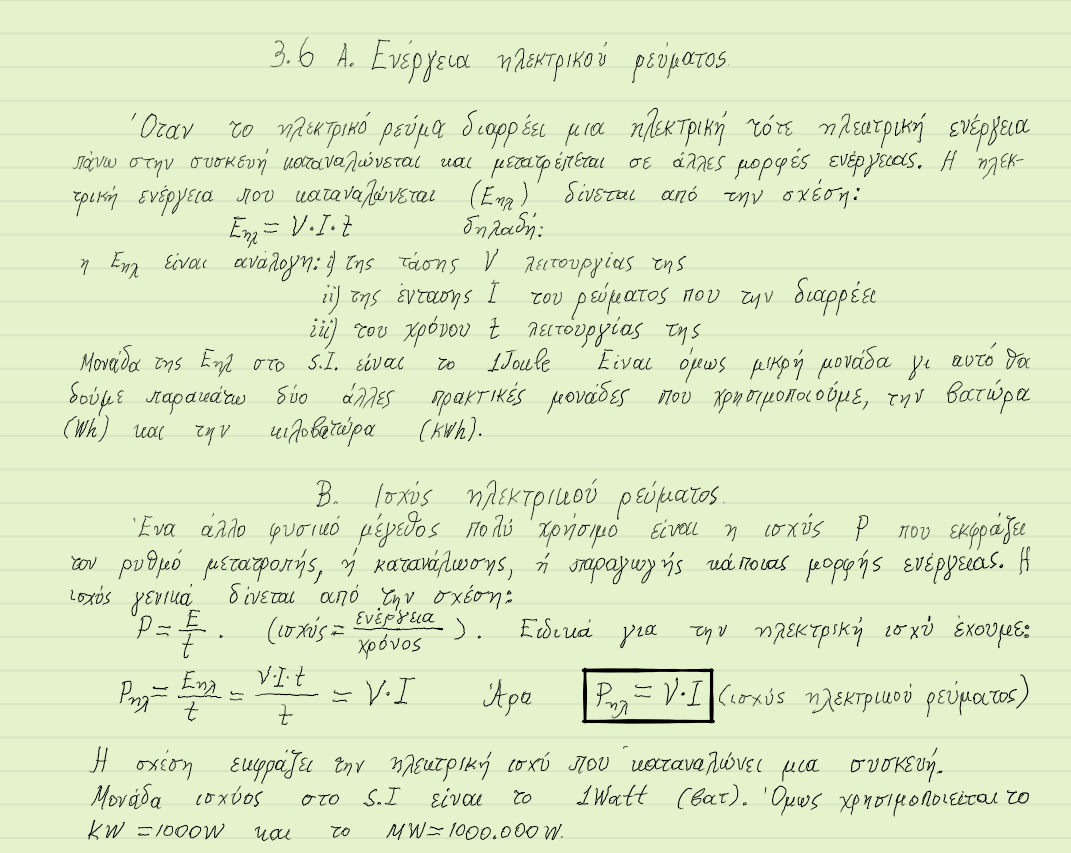 3.6 Α. Ενέργεια ηλεκτρικού ρεύματος.
Όταν το ηλεκτρικό ρεύμα διαρρέει μια ηλεκτρική τότε ηλεκτρική ενέργεια
πάνω στην συσκευή καταναλώνεται και μετατρέπεται σε άλλες μορφές ενέργειας. Η ηλεκ-
τρική ενέργεια που καταναλώνεται (Eηλ) δίνεται από την σχέση:
Eηλ = V·I·t δηλαδή:
η Eηλ είναι ανάλογη: i) της τάσης V λειτουργίας της
ii) της έντασης I του ρεύματος που την διαρρέει
iii) του χρόνου t λειτουργίας της
Μονάδα της Eηλ στο S.I. είναι το 1Joule Είναι όμως μικρή μονάδα γι αυτό θα
δούμε παρακάτω δύο άλλες πρακτικές μονάδες που χρησιμοποιούμε, την βατώρα
(Wh) και την κιλοβατώρα (KWh).
Β. Ισχύς ηλεκτρικού ρεύματος.
Ένα άλλο φυσικό μέγεθος πολύ χρήσιμο είναι η ισχύς P που εκφράζει
τον ρυθμό μετατροπής, ή κατανάλωσης, ή παραγωγής κάποιας μορφής ενέργειας. Η
ισχύς γενικά δίνεται από την σχέση:
P = E/t . (ισχύς = ενέργεια/χρόνος ). Ειδικά για την ηλεκτρική ισχύ έχουμε:
Pηλ = Eηλ/t = V·I·t/t = V·I Άρα Pηλ = V·I (ισχύς ηλεκτρικού ρεύματος)
Η σχέση εκφράζει την ηλεκτρική ισχύ που καταναλώνει μια συσκευή.
Μονάδα ισχύος στο S.I είναι το 1Watt (βατ). Όμως χρησιμοποιείται το
KW = 1000W και το MW = 1000.000W.